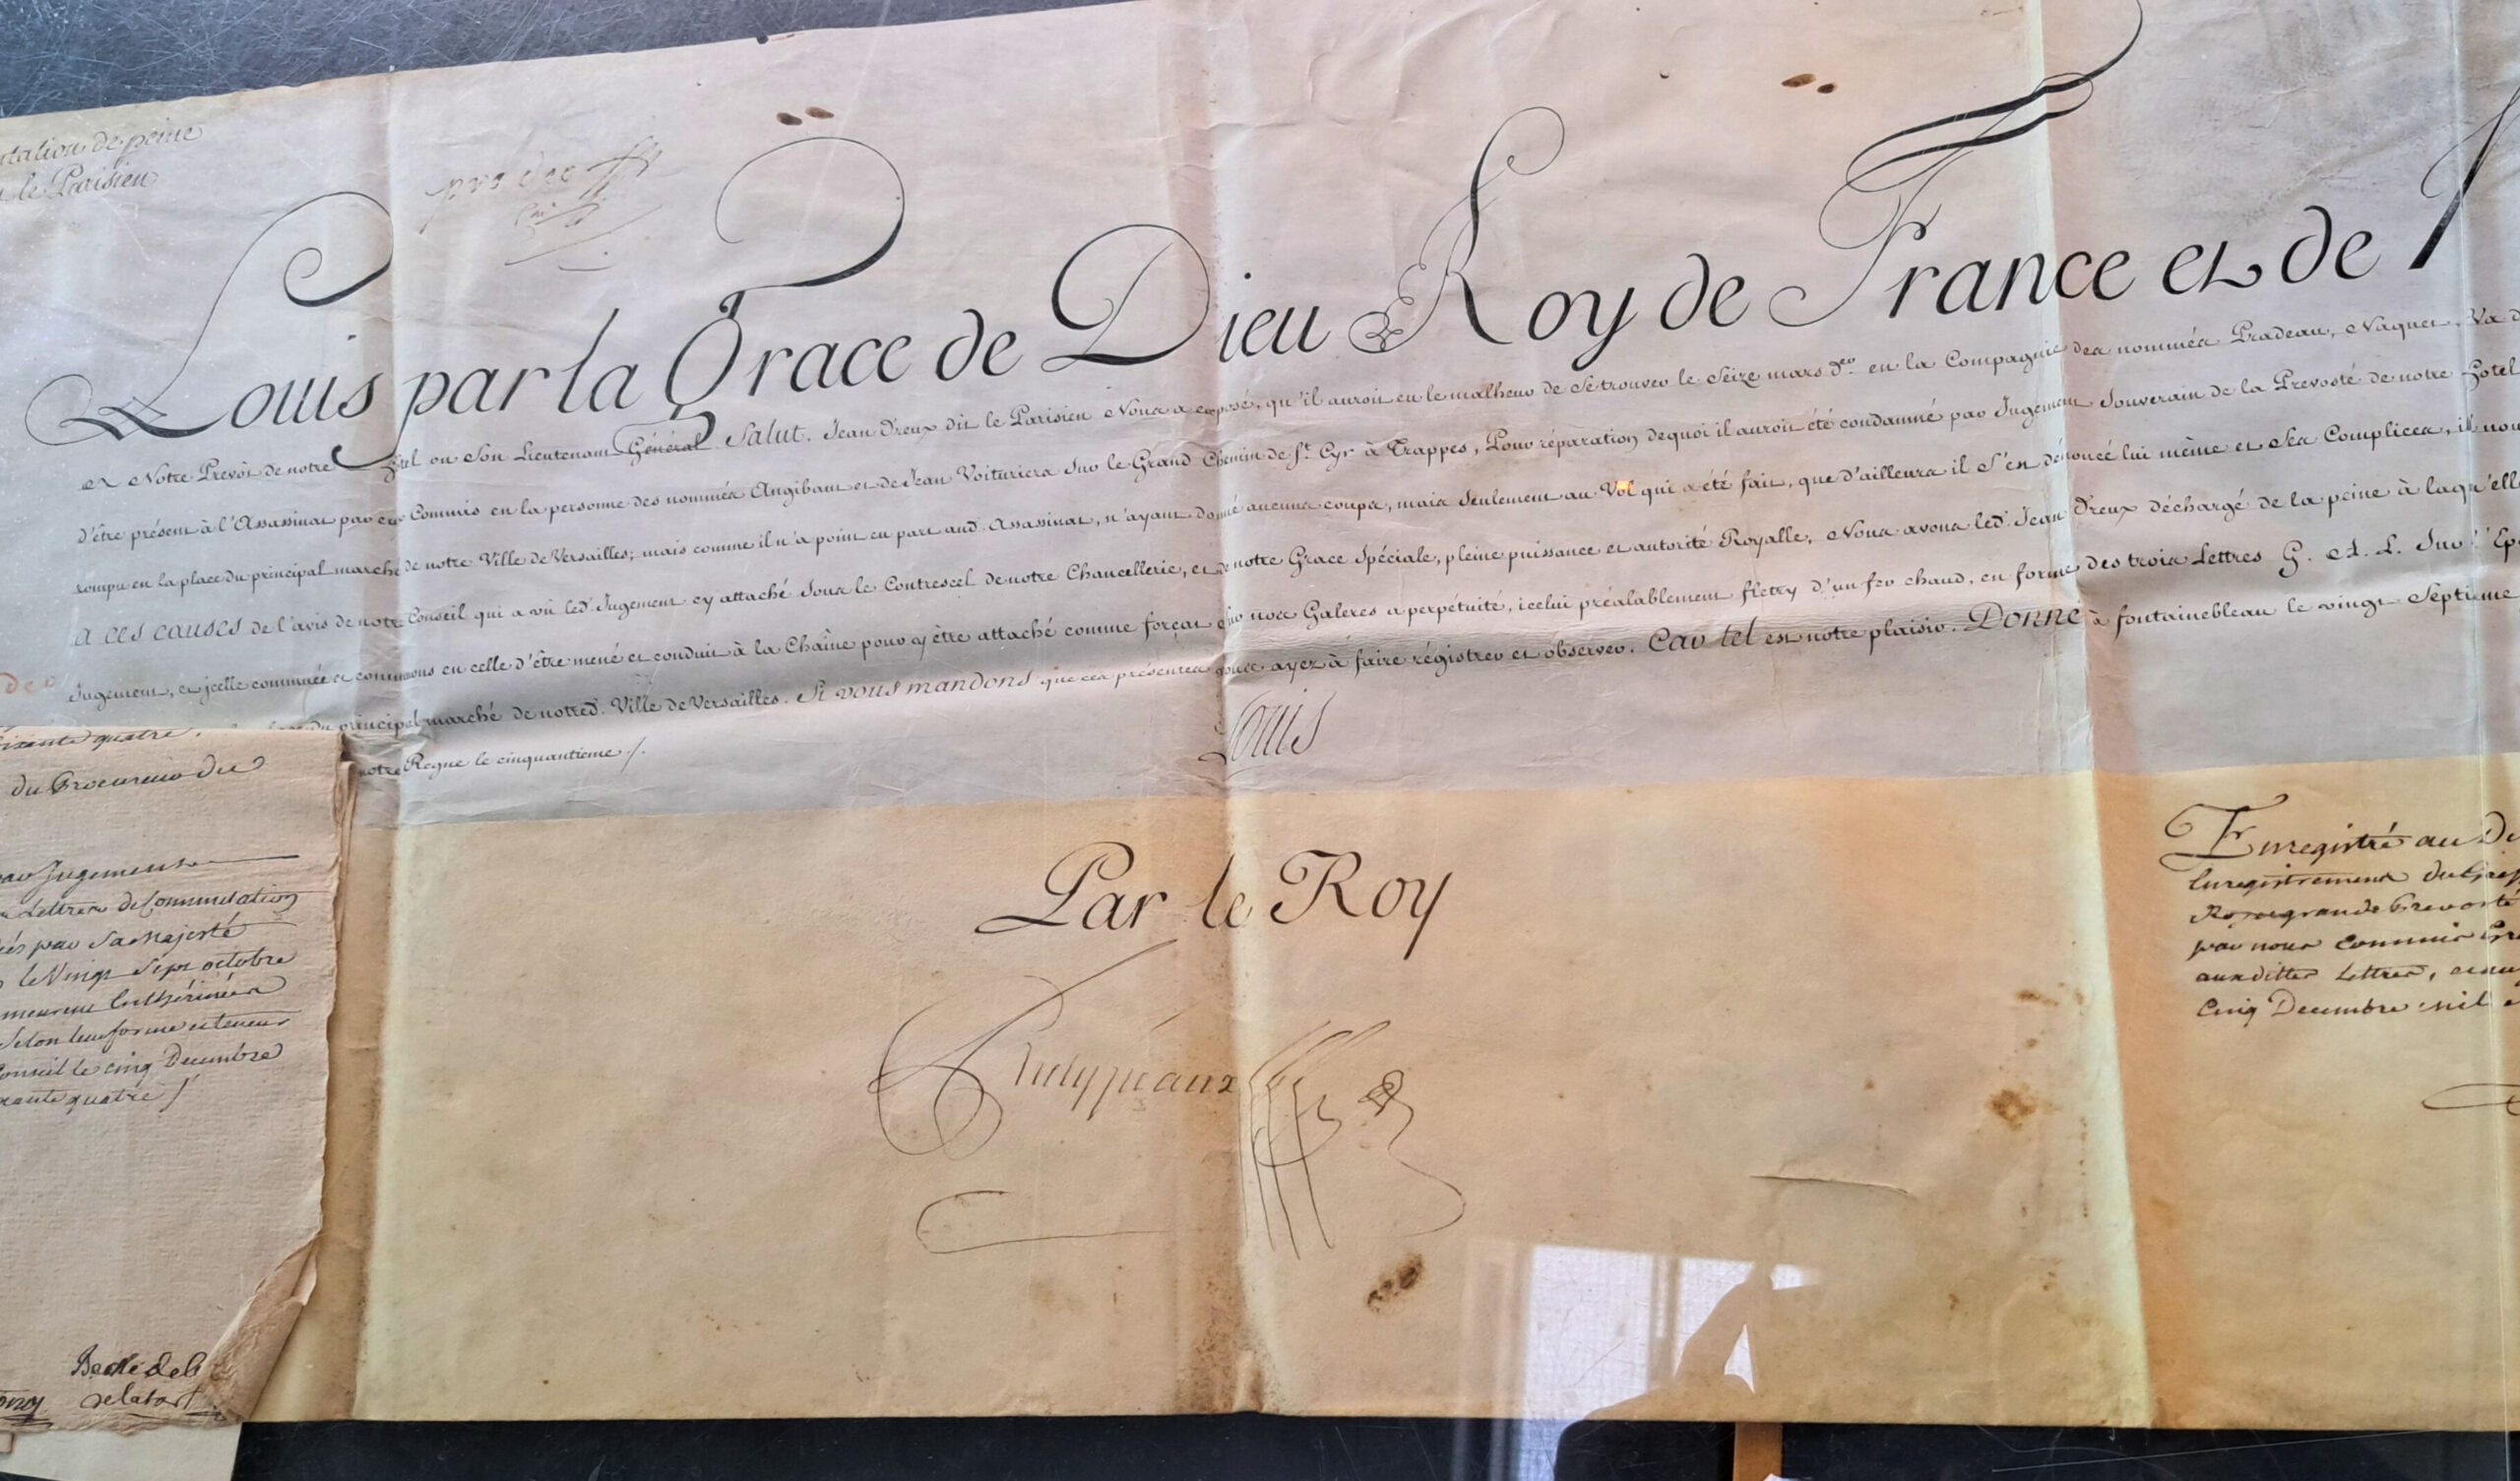 tation de peine
le Parisien
Louis par la Grace de Dieu Roy de France et de N
A Notre Prevôt de notre hôtel ou Son Lieutenant Général Salut. Jean Dreux dit le Parisien Nous a exposé, qu'il auroit eu le malheur de Se trouver le Seize mars d.er en la Compagnie des nommés Pradeau, Naquet, Va
d'être présent à l'Assassinat par eux Commis en la personne des nommés Angibaut et de Jean Voituriers Sur le Grand Chemin de St. Cyr à Trappes, Pour réparation dequoi il auroit été condamné par Jugement Souverain de la Prevosté de notre hotel
rompu en la place du principal marché de notre Ville de Versailles; mais comme il n'a point eu part aud. Assassinat, n'ayant donné aucuns coups, mais Seulement au Vol qui a été fait, que d'ailleurs il S'est dénoncé lui même et Ses Complices, il nou
A CES CAUSES de l'avis de notre Conseil qui a vû led. Jugement cy attaché Sous le Contrescel de notre Chancellerie, et de notre Grace Spéciale, pleine puissance et autorité Royalle, Nous avons led. Jean Dreux déchargé de la peine à laqu'elle
Jugement, et jcelle commuée et commuons en celle d'être mené et conduit à la Chaîne pour y être attaché comme forçat Sur nos Galeres a perpétuité, icelui préalablement fletry d'un fer chaud, en forme des trois Lettres G. A. L. Sur l'Ep
du principal marché de notred. Ville de Versailles. Si vous mandons que ces présentes vous ayez à faire régistrer et observer. Car tel est notre plaisir. Donné à fontainebleau le vingt Septieme
notre Regne le cinquantieme /.
Louis
Par le Roy
Phelypeaux
ixante quatre.
du Procureur du
par Jugement
Lettres de Commutation
par Sa Majesté
le Vingt Sept octobre
meurent Enthérinées
Selon leur forme et teneur
Conseil le cinq Decembre
xante quatre /
Enregistré au De
Enregistrement du Gref
grande Prevosté
par nous Commis Gre
auxdittes Lettres,
Cinq Decembre mil